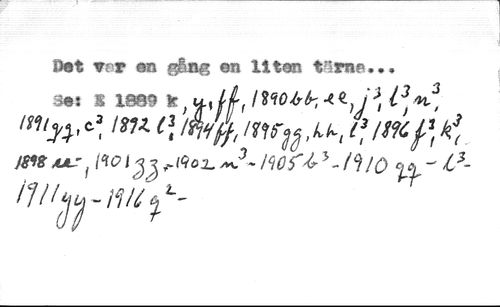 Det var en gång en liten tärna...
Se: E 1889 k, y, ff, 1890 bb, ee, j³, l³, n³,
1891 qq, c³, 1892 l³, 1894 ff, 1895 gg, hh, l³, 1896 f³, k³,
1898 ee-, 1901 zz - 1902 n³ - 1905 b³ - 1910 qq - l³ -
1911 yy - 1916 q² -